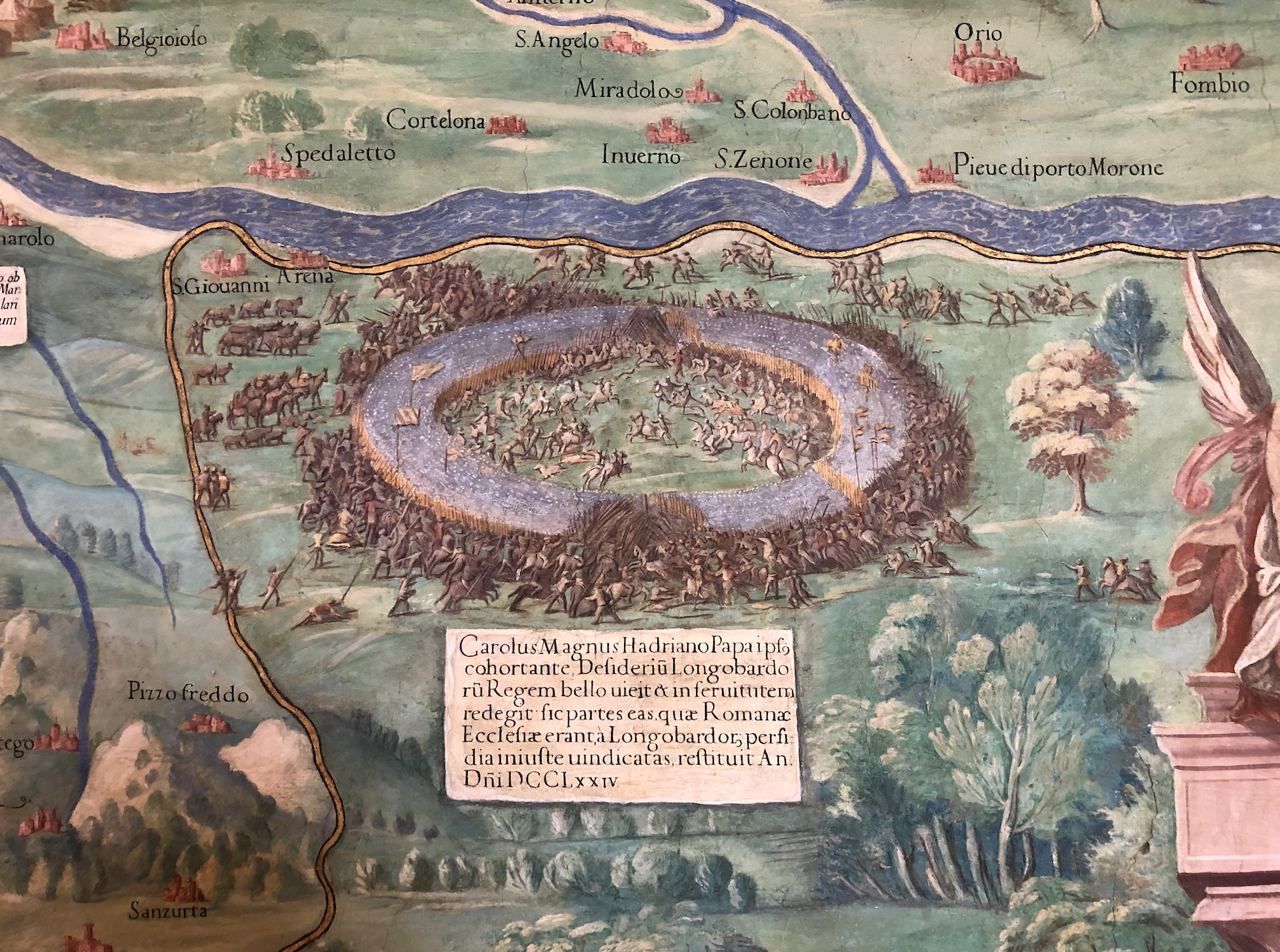 Belgioioso
S. Angelo
Orio
Fombio
Miradolo
S. Colonbano
Cortelona
Inuerno
S. Zenone
Spedaletto
Pieue di porto Morone
S. Giouanni
Arena
Carolus Magnus Hadriano Papa ipso
cohortante, Desideriū Longobardo
rū Regem bello uicit & in seruitutem
redegit sic partes eas, quæ Romanæ
Ecclesiæ erant, à Longobardorꝫ perfi
dia iniuste uindicatas, restituit An.
Dñi DCCLXXIV
Pizzo freddo
Sanzurta